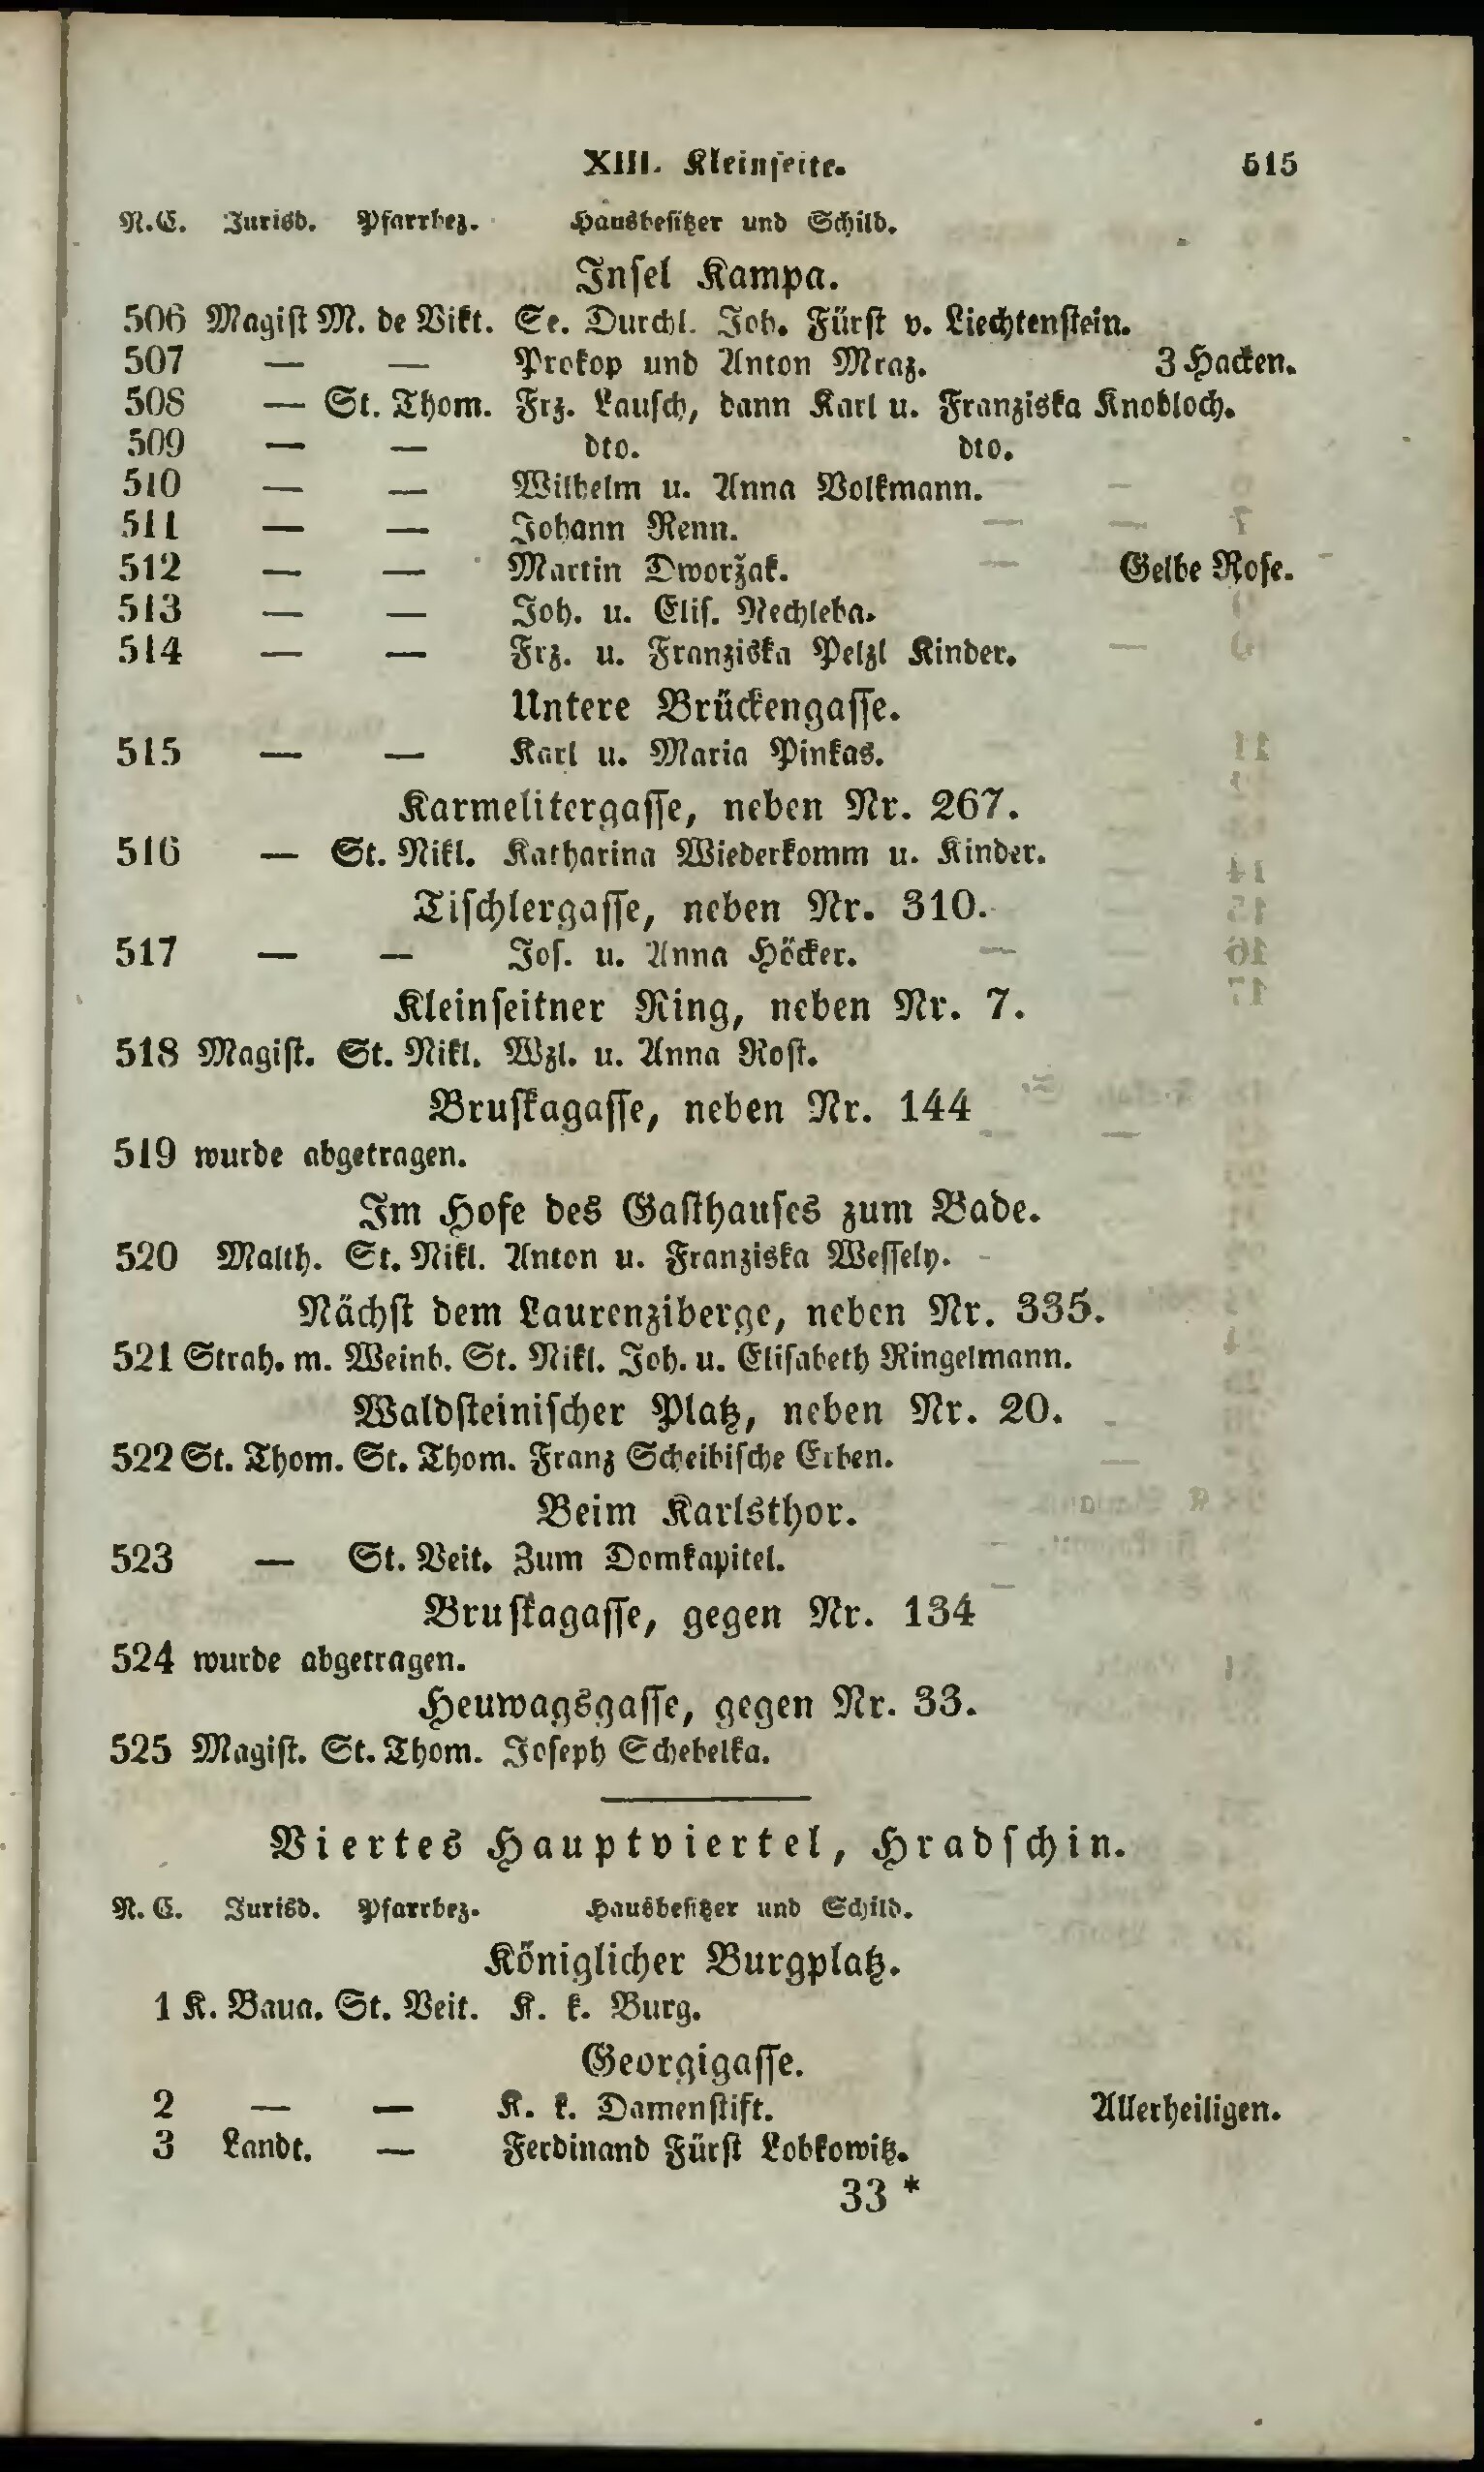 XIII. Kleinseite. 515
N.C. Jurisd. Pfarrbez. Hausbesitzer und Schild.
Insel Kampa.
506 Magist M. de Vikt. Se. Durchl. Joh. Fürst v. Liechtenstein.
507 — — Prokop und Anton Mraz. 3 Hacken.
508 — St. Thom. Frz. Lausch, dann Karl u. Franziska Knobloch.
509 — — dto. dto.
510 — — Wilhelm u. Anna Volkmann.
511 — — Johann Renn.
512 — — Martin Dworžak. Gelbe Rose.
513 — — Joh. u. Elis. Nechleba.
514 — — Frz. u. Franziska Pelzl Kinder.
Untere Brückengasse.
515 — — Karl u. Maria Pinkas.
Karmelitergasse, neben Nr. 267.
516 — St. Nikl. Katharina Wiederkomm u. Kinder.
Tischlergasse, neben Nr. 310.
517 — — Jos. u. Anna Höcker.
Kleinseitner Ring, neben Nr. 7.
518 Magist. St. Nikl. Wzl. u. Anna Rost.
Bruskagasse, neben Nr. 144
519 wurde abgetragen.
Im Hofe des Gasthauses zum Bade.
520 Malth. St. Nikl. Anton u. Franziska Wessely.
Nächst dem Laurenziberge, neben Nr. 335.
521 Strah. m. Weinb. St. Nikl. Joh. u. Elisabeth Ringelmann.
Waldsteinischer Platz, neben Nr. 20.
522 St. Thom. St. Thom. Franz Scheibische Erben.
Beim Karlsthor.
523 — St. Veit. Zum Domkapitel.
Bruskagasse, gegen Nr. 134
524 wurde abgetragen.
Heuwagsgasse, gegen Nr. 33.
525 Magist. St. Thom. Joseph Schebelka.
Viertes Hauptviertel, Hradschin.
N.C. Jurisd. Pfarrbez. Hausbesitzer und Schild.
Königlicher Burgplatz.
1 K. Baua. St. Veit. K. k. Burg.
Georgigasse.
2 — — K. k. Damenstift. Allerheiligen.
3 Landt. — Ferdinand Fürst Lobkowitz.
33 *